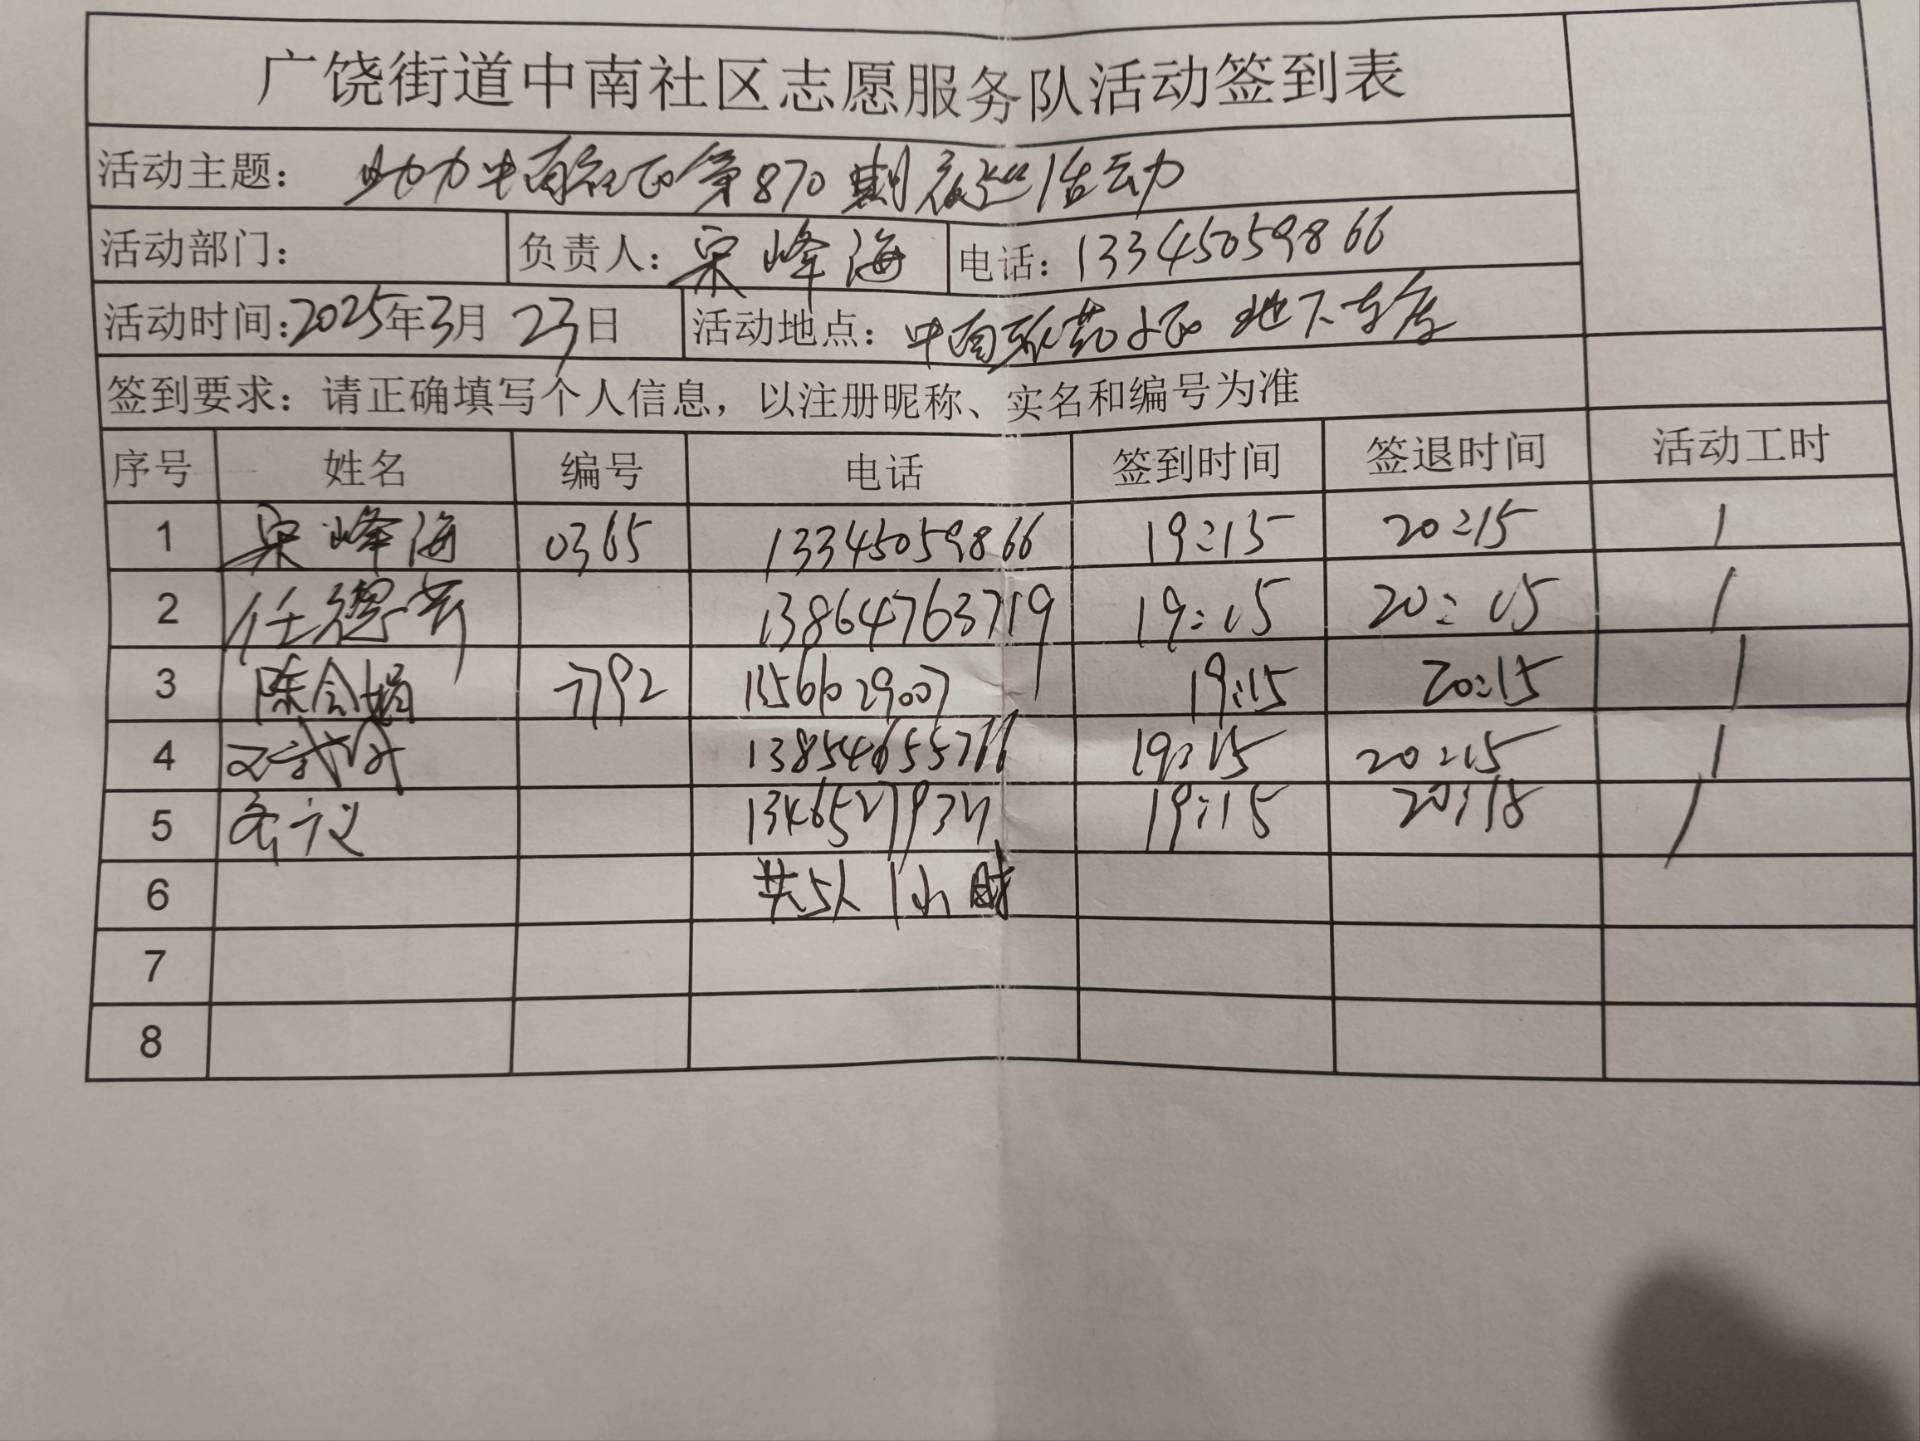 广饶街道中南社区志愿服务队活动签到表
活动主题： 助力中南社区第870期夜巡活动
活动部门： 负责人：宋峰海 电话：13345059866
活动时间：2025年3月23日 活动地点：中南 小区 地下车库
签到要求：请正确填写个人信息，以注册昵称、实名和编号为准
序号 姓名 编号 电话 签到时间 签退时间 活动工时
1 宋峰海 0365 13345059866 19:15 20:15 1
2 任德 13864763719 19:15 20:15 1
3 陈会娟 19:15 20:15 1
4 19:15 20:15 1
5 19:15 1
6 共5人 1小时
7
8